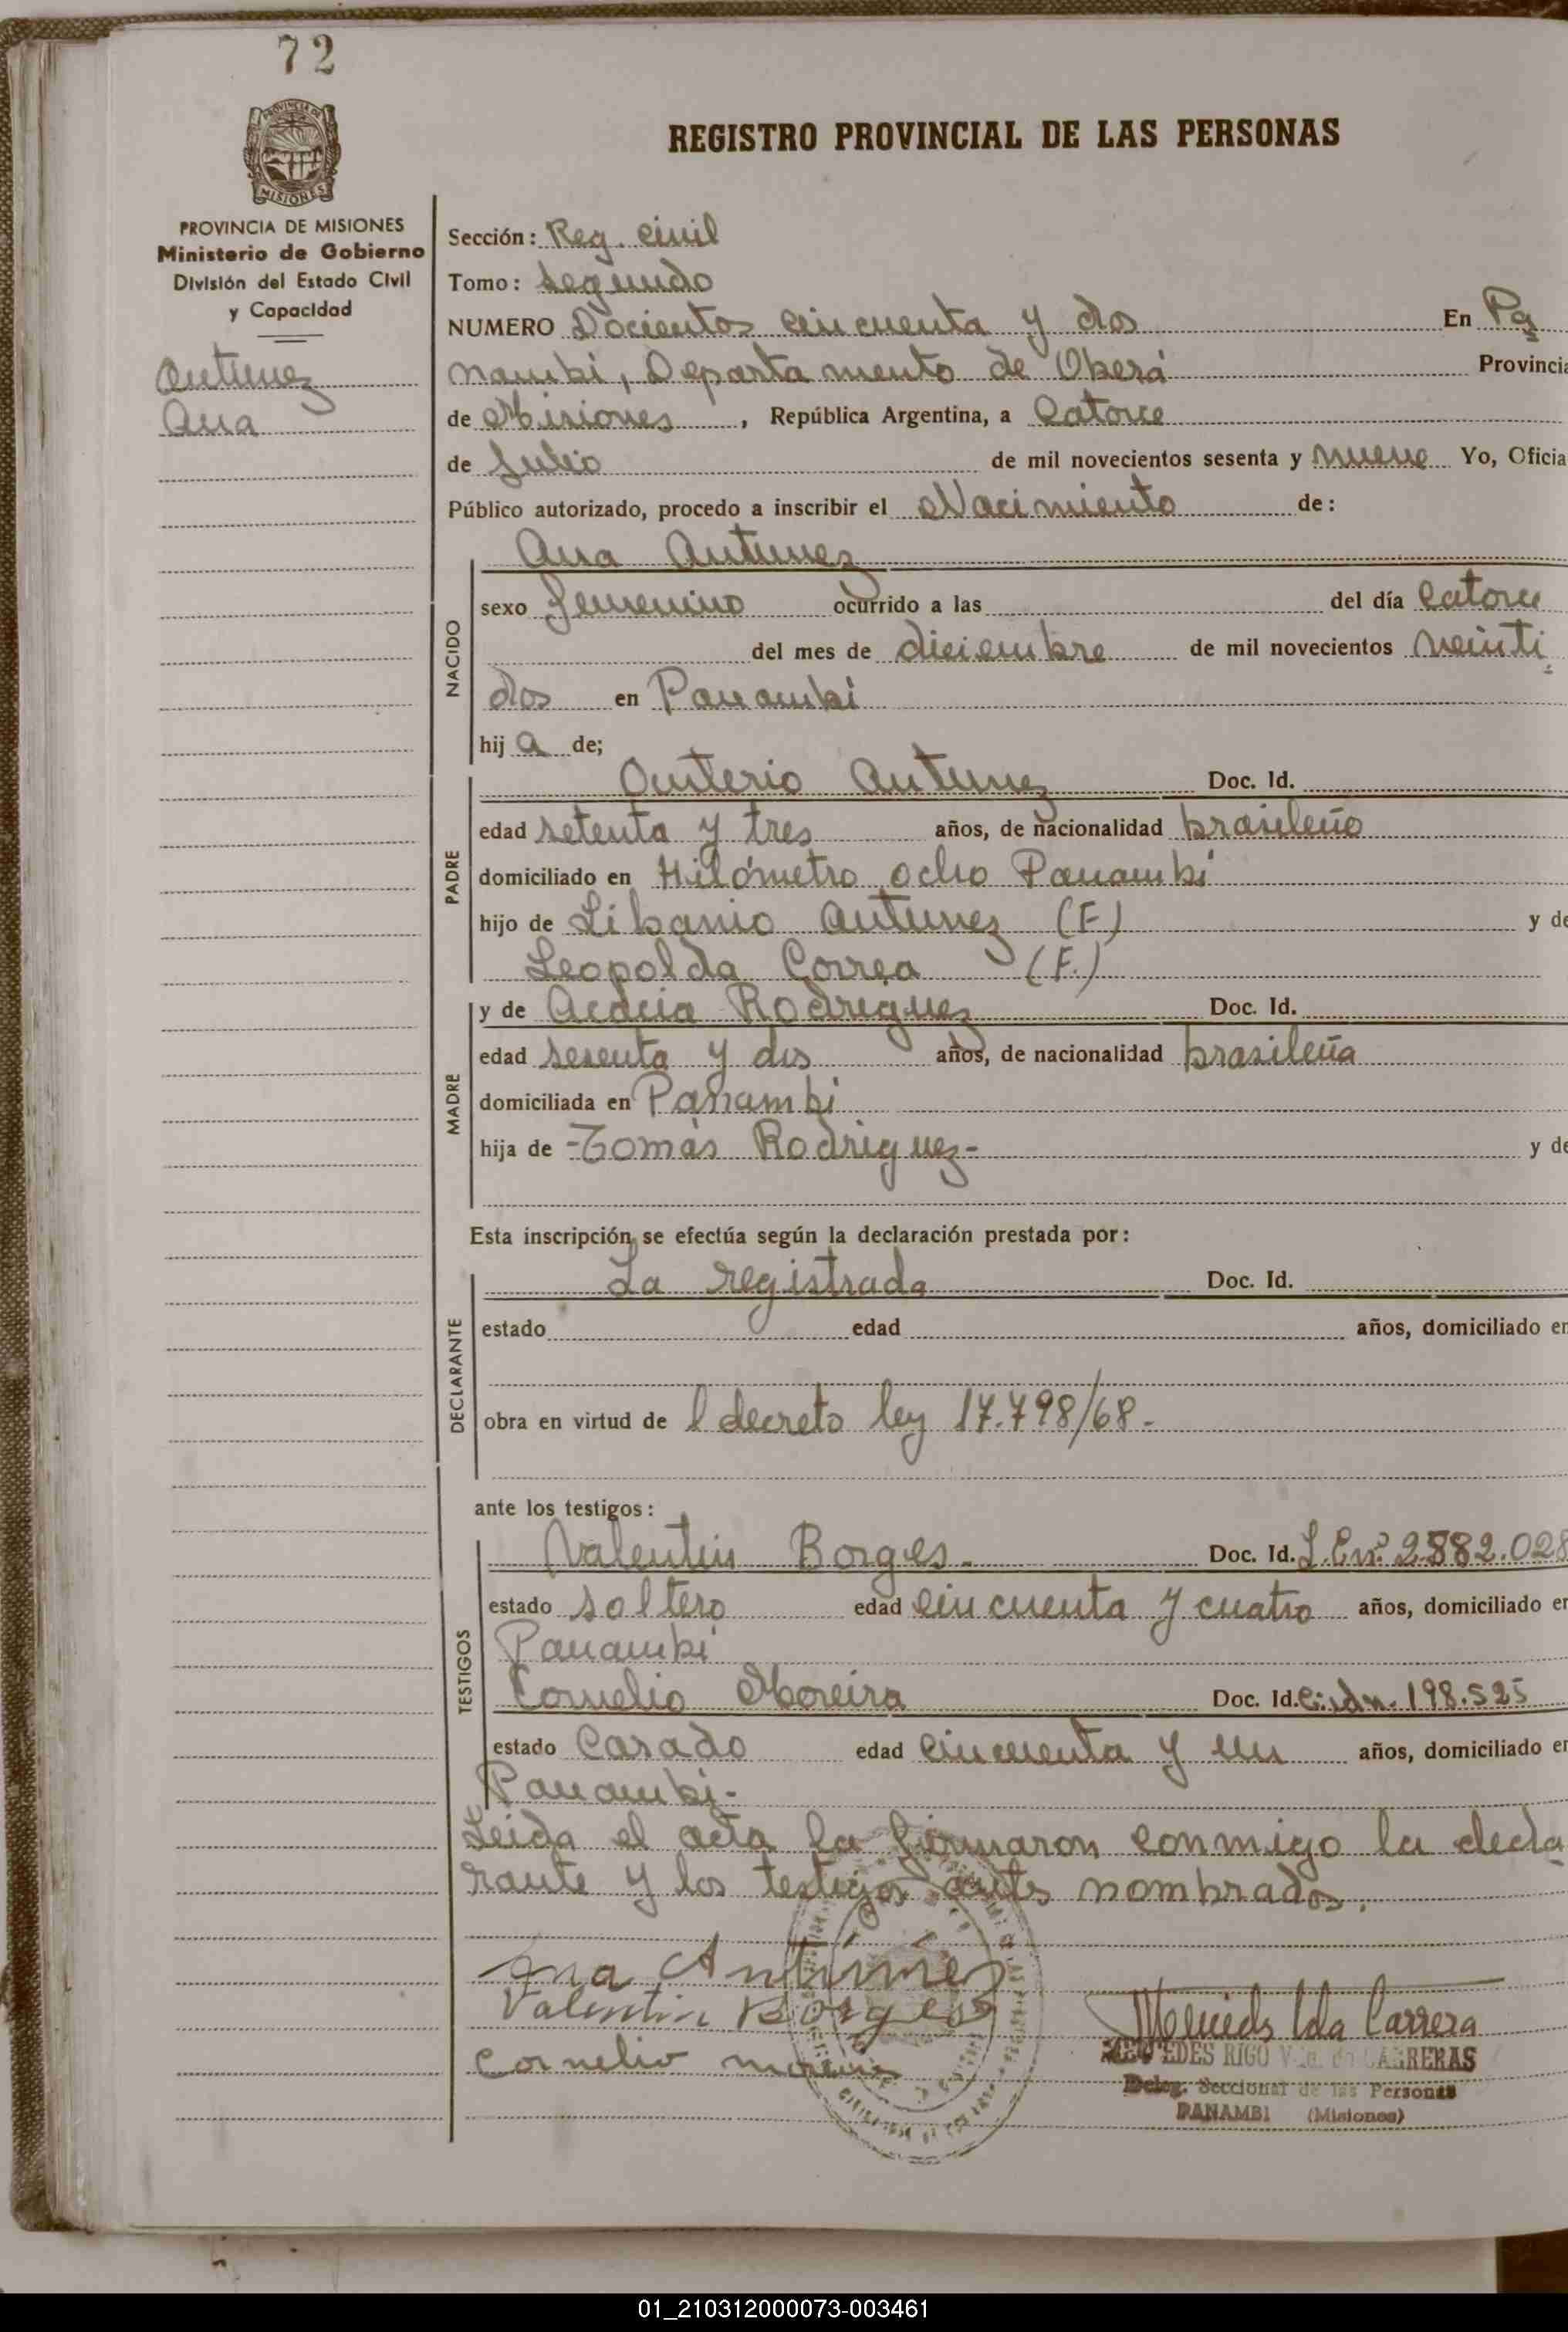 72
PROVINCIA DE MISIONES
MISIONES
PROVINCIA DE MISIONES
Ministerio de Gobierno
División del Estado Civil
y Capacidad
Antunez
Ana
REGISTRO PROVINCIAL DE LAS PERSONAS
Sección: Reg. Civil
Tomo: Segundo
NUMERO Docientos cincuenta y dos En Pa
nambi, Departamento de Oberá Provincia
de Misiones, República Argentina, a Catorce
de Julio de mil novecientos sesenta y nueve Yo, Oficia
Público autorizado, procedo a inscribir el Nacimiento de:
Ana Antunez
NACIDO
sexo femenino ocurrido a las del día catorce
del mes de diciembre de mil novecientos veinti
dos en Panambi
hij a de;
PADRE
Anterio Antunez Doc. Id.
edad setenta y tres años, de nacionalidad brasileño
domiciliado en Kilómetro ocho Panambi
hijo de Libanio Antunez (F) y de
Leopolda Correa (F.)
MADRE
y de Acacia Rodriguez Doc. Id.
edad sesenta y dos años, de nacionalidad brasileña
domiciliada en Panambi
hija de -Tomás Rodriguez- y de
Esta inscripción se efectúa según la declaración prestada por:
DECLARANTE
La registrada Doc. Id.
estado edad años, domiciliado en
obra en virtud de l decreto ley 17.798/68.-
ante los testigos:
TESTIGOS
Valentin Borges.- Doc. Id. L.E nº 2882.028
estado soltero edad cincuenta y cuatro años, domiciliado en
Panambi
Cornelio Moreira Doc. Id. 198.525
estado Casado edad cincuenta y un años, domiciliado en
Panambi.-
Leida el acta la firmaron conmigo la decla
rante y los testigos antes nombrados.
Ana Antunez
Valentin Borges
Cornelio Moreira
Mercedes Vda Carrera
MERCEDES RIGO Vda. de CARRERAS
Deleg. Seccional de las Personas
PANAMBI (Misiones)
01_210312000073-003461